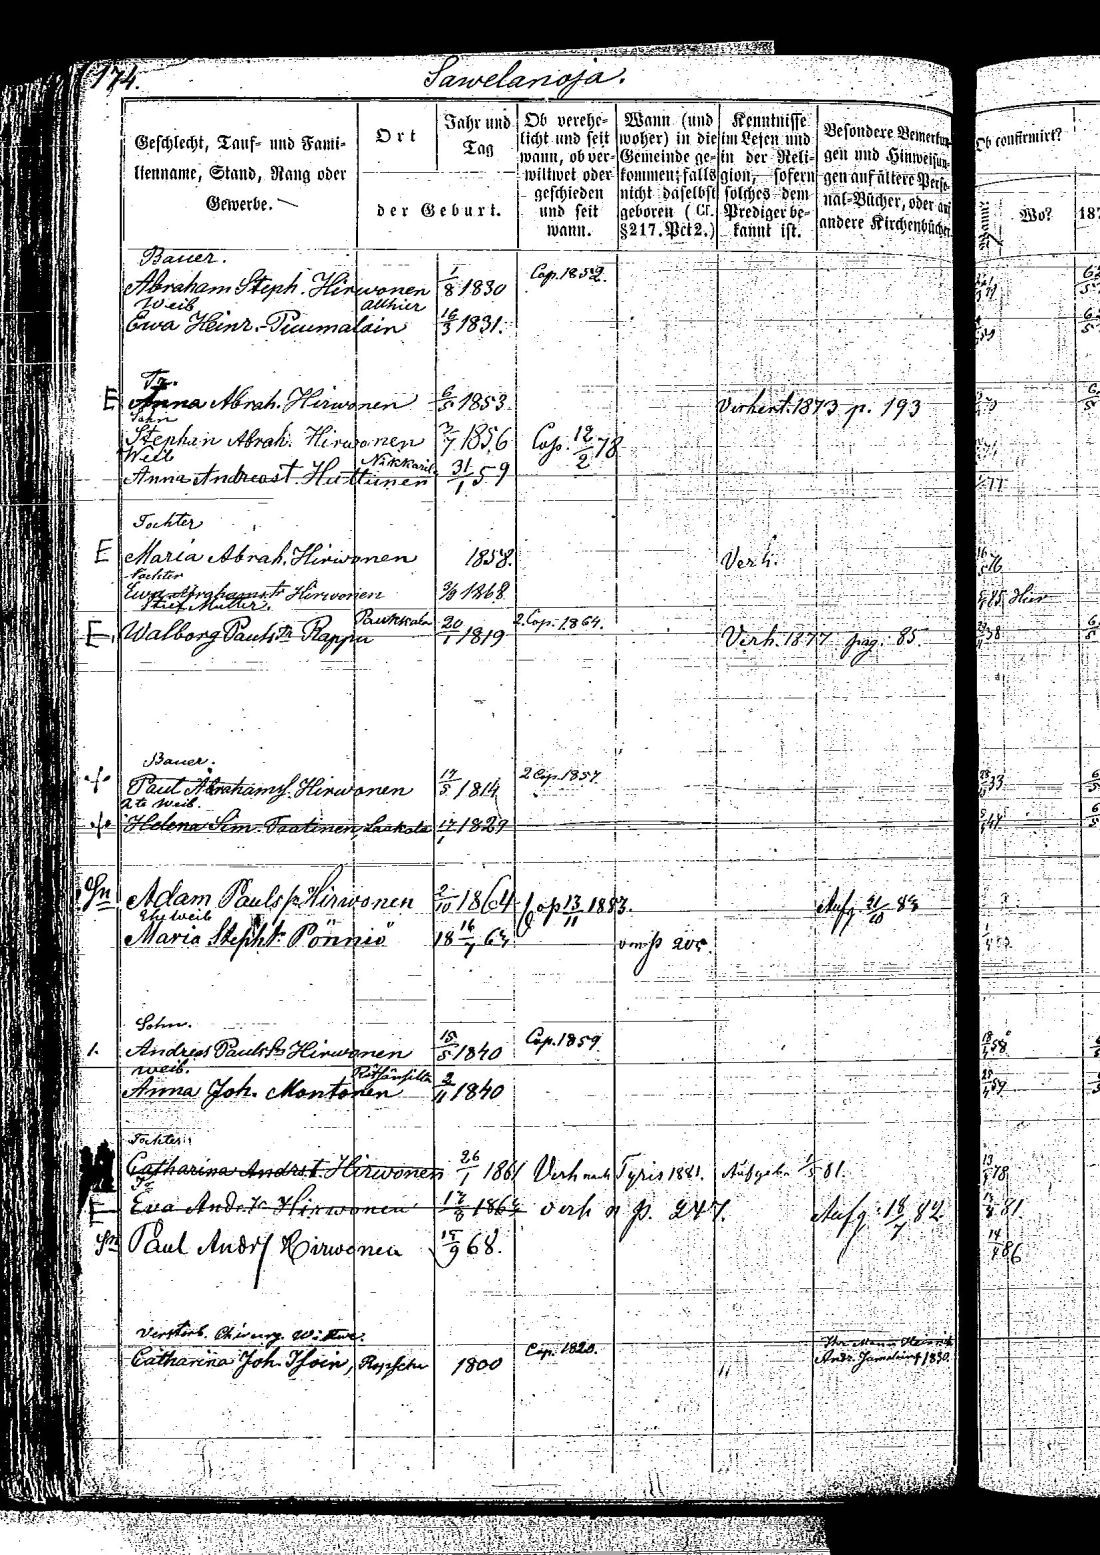 174.
Sawelanoja.
Geschlecht, Tauf- und Fami-
lienname, Stand, Rang oder
Gewerbe.
Ort
Jahr und
Tag
der Geburt.
Ob verehe-
licht und seit
wann, ob ver-
wittwet oder
geschieden
und seit
wann.
Wann (und
woher) in die
Gemeinde ge-
kommen; falls
nicht daselbst
geboren (Cf.
§217. Pct 2.)
Kenntnisse
im Lesen und
in der Reli-
gion, sofern
solches dem
Prediger be-
kannt ist.
Besondere Bemerkun-
gen und Hinweisun-
gen auf ältere Perso-
nal-Bücher, oder auf
andere Kirchenbücher
Ob confirmirt?
Wann?
Wo?
187
Bauer.
Abraham Steph. Hirwonen 1/8 1830 Cop. 1852.
Weib allhier
Ewa Heinr. Puumalain 16/3 1831.
Tr.
E Anna Abrah. Hirwonen 6/5 1853. Verheirt. 1873 p. 193
Sohn
Stephan Abrah. Hirwonen 3/7 1856 Cop. 12/2 78
Weib Nikkari
Anna Andreast. Huttunen 31/1 59
Tochter
E Maria Abrah. Hirwonen 1858. Verh.
Tochter
Ewa Abrahamstr Hirwonen 1868 Hier
Stief Mutter.
E Walborg Paulstr Rappu Paukkala 20/1 1819 2. Cop. 1864. Verh. 1877 pag: 85.
Bauer.
Paul Abrahams. Hirwonen 17/5 1814 2 Cop. 1857
2te Weib.
Helena Sim. Taatinen, Laakola 17/1 1829
Sn Adam Pauls. Hirwonen 2/10 1864 Cop 13/11 1883. Aufg. 31/10 83
Ehe Weib
Maria Steph. tr Pönniö 18 16/7 63 205.
Sohn.
1. Andreas Pauls Sn Hirwonen 15/5 1840 Cop. 1859
Weib.
Anna Joh. Montonen 2/11 1840
Tochter
Catharina Andrs t. Hirwonen 26/1 1861 Verh nach Tyris 1881. Aufgebo 1/5 81.
To
E Eva Andr. tr Hirwonen 17/8 1864 verh n p. 247. Aufg. 18/7 82
Sn Paul Andrs Hirwonen 15/9 68.
Verstorb. Chirurg. Wittwe.
Catharina Joh. Isoin, Ropscha 1800 Cop. 1820. Ihr Mann Heinrich
Andr. 1830.